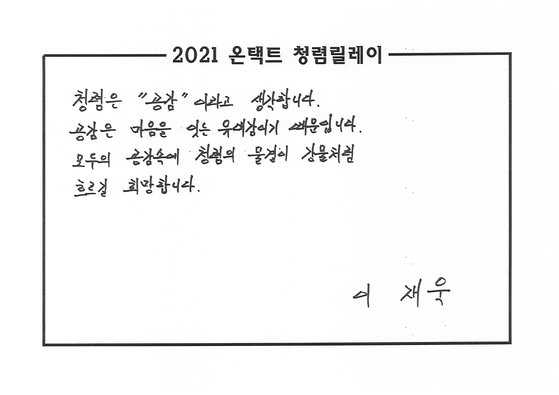 2021 온택트 청렴릴레이
청렴은 "공감" 이라고 생각합니다.
공감은 마음을 잇는 유대감이기 때문입니다.
모두의 공감속에 청렴의 물결이 강물처럼
흐르길 희망합니다.
이 재욱